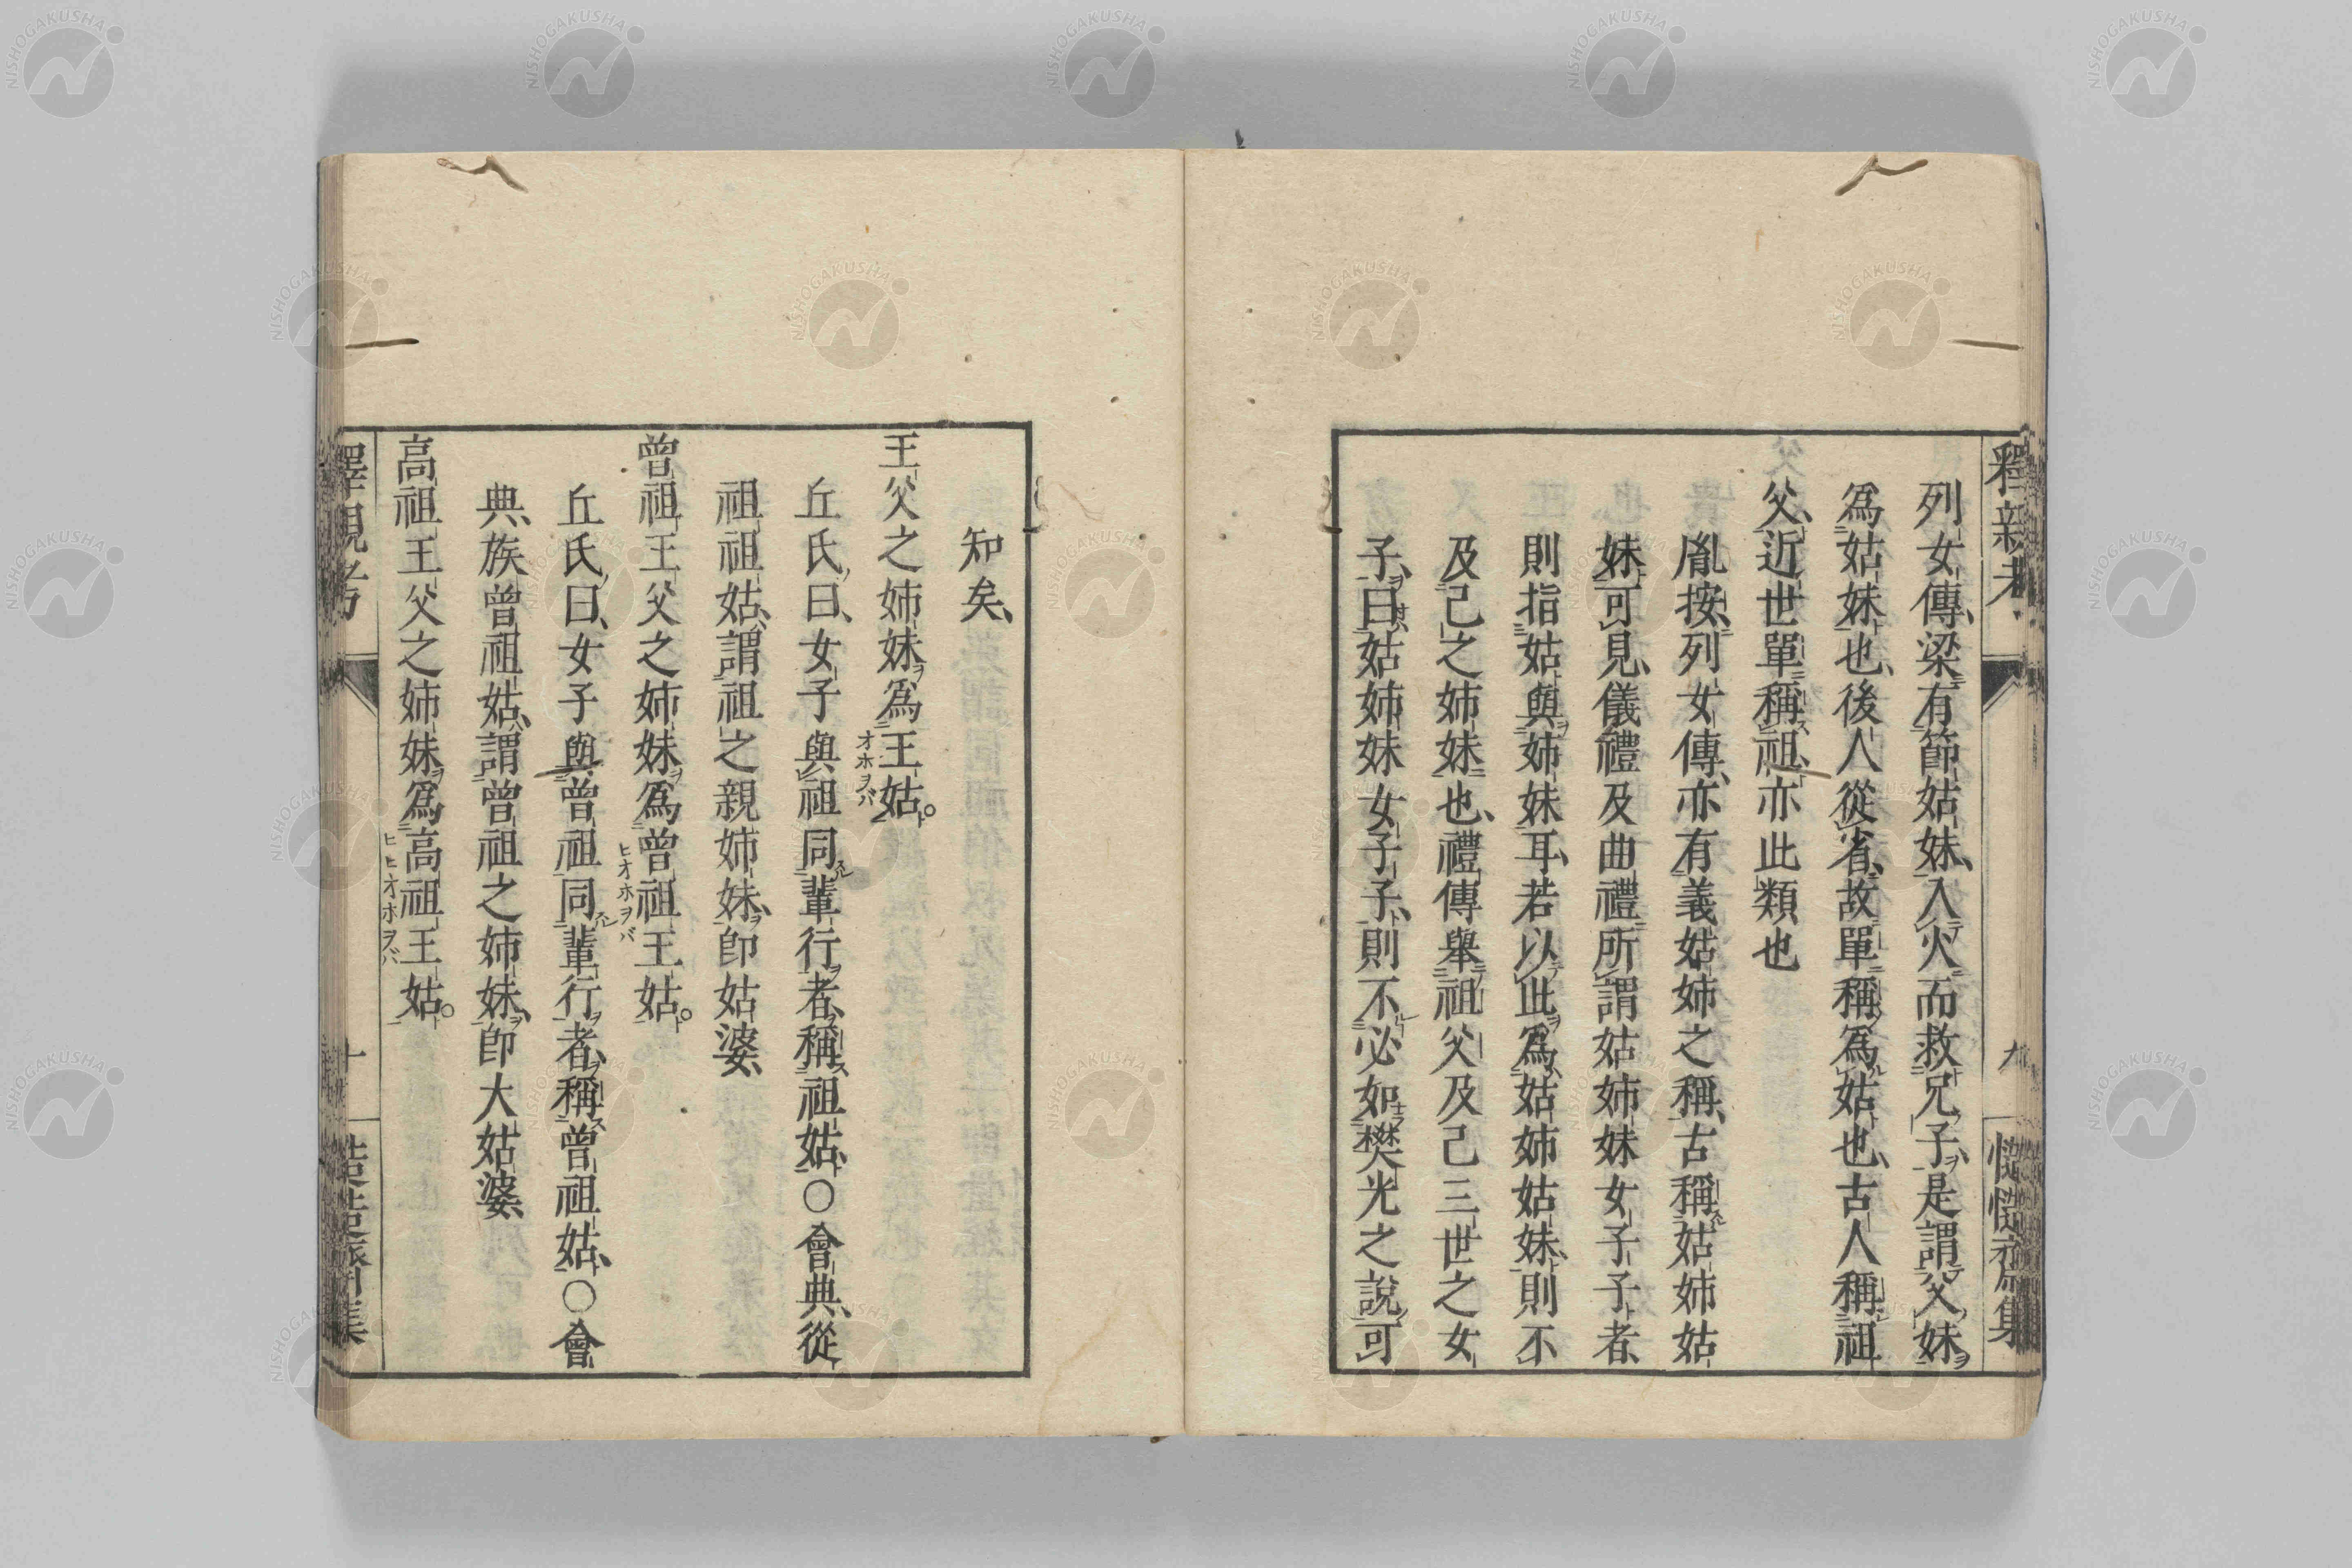 釋親考
九
慥慥齋集
列女傳、梁有節姑妹、入火而救兄子、是謂父妹
爲姑妹也、後人從省、故單稱爲姑也、古人稱祖
父、近世單稱祖、亦此類也
胤按、列女傳、亦有義姑姉之稱、古稱姑姉姑
妹可見、儀禮及曲禮所謂姑姉妹女子子者、
則指姑與姉妹耳、若以此爲姑姉姑妹、則不
及己之姉妹也、禮傳舉祖父及己三世之女
子、曰姑姉妹女子子、則不必如樊光之說可
知矣、
王父之姉妹爲王姑。
オホヲバ
丘氏曰、女子與祖同輩行者、稱祖姑、〇會典、從
祖祖姑、謂祖之親姉妹、卽姑婆、
曾祖王父之姉妹爲曾祖王姑。
ヒオホヲバ
丘氏曰、女子與曾祖同輩行者、稱曾祖姑、〇會
典、族曾祖姑、謂曾祖之姉妹、卽大姑婆、
高祖王父之姉妹爲高祖王姑。
ヒヒオホヲバ
釋親考
十